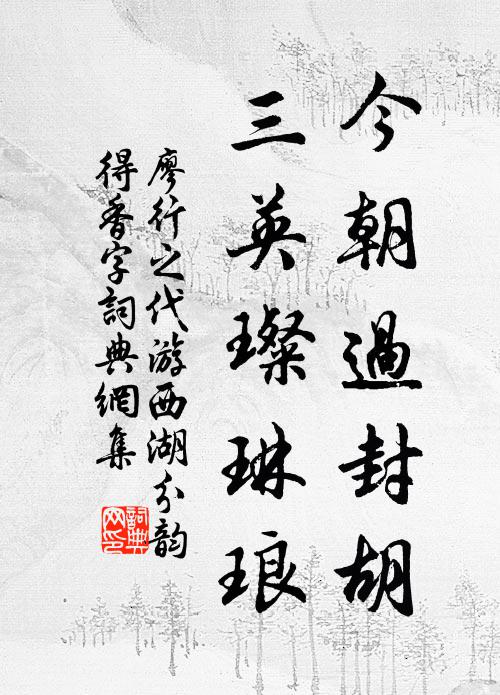 今朝過封胡
三英璨琳琅
廖行之代游西湖分韵
得香字詞典網集
詞典網印